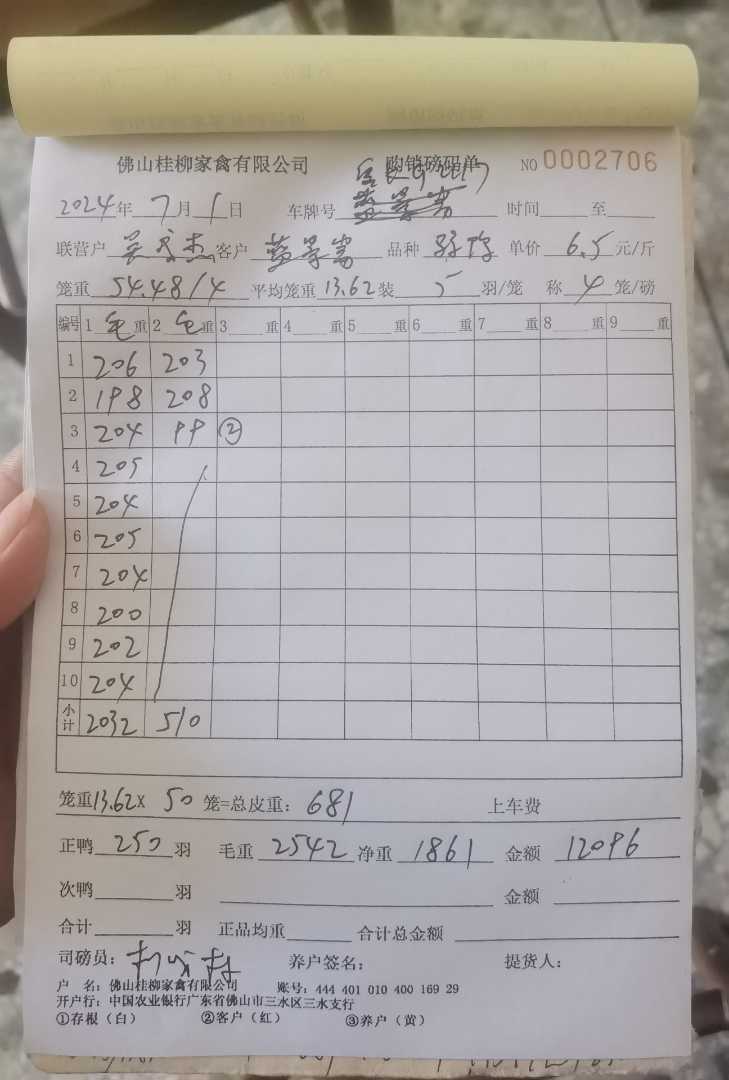 佛山桂柳家禽有限公司 购销磅码单 NO 0002706
2024年 7月 1日 车牌号 时间 至
联营户 客户 蓝景嵩 品种 单价 6.5 元/斤
笼重 54.48/4 平均笼重 13.62 装 5 羽/笼 称 4 笼/磅
编号 1 毛 重 2 毛 重 3 重 4 重 5 重 6 重 7 重 8 重 9 重
1 206 203
2 198 208
3 204 99 ②
4 205
5 204
6 205
7 204
8 200
9 202
10 204
小计 2032 510
笼重13.62X 50 笼=总皮重: 681 上车费
正鸭 250 羽 毛重 2542 净重 1861 金额 12096
次鸭 羽 金额
合计 羽 正品均重 合计总金额
司磅员: 养户签名: 提货人:
户 名: 佛山桂柳家禽有限公司 账号: 444 401 010 400 169 29
开户行: 中国农业银行广东省佛山市三水区三水支行
①存根(白) ②客户(红) ③养户(黄)